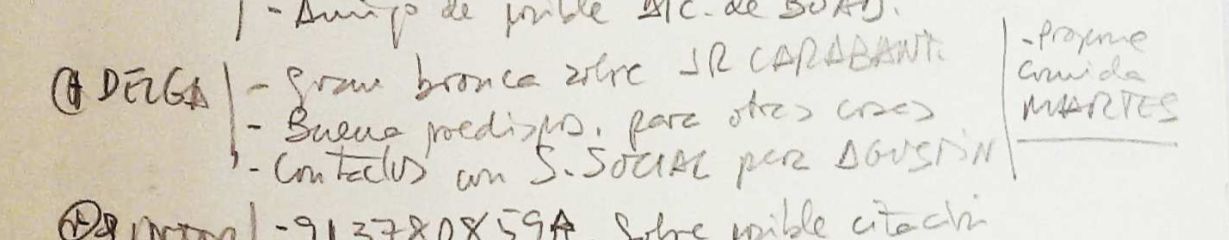 - Amigo de posible A/C. de SUAD.
DELGA - Gran bronca sobre JR CARABANT.
- Buena predispos. para otras cosas
- Contactos con S. SOCIAL para AGUSTIN
- Propone
comida
MARTES
- 913780859A. Sobre posible citación